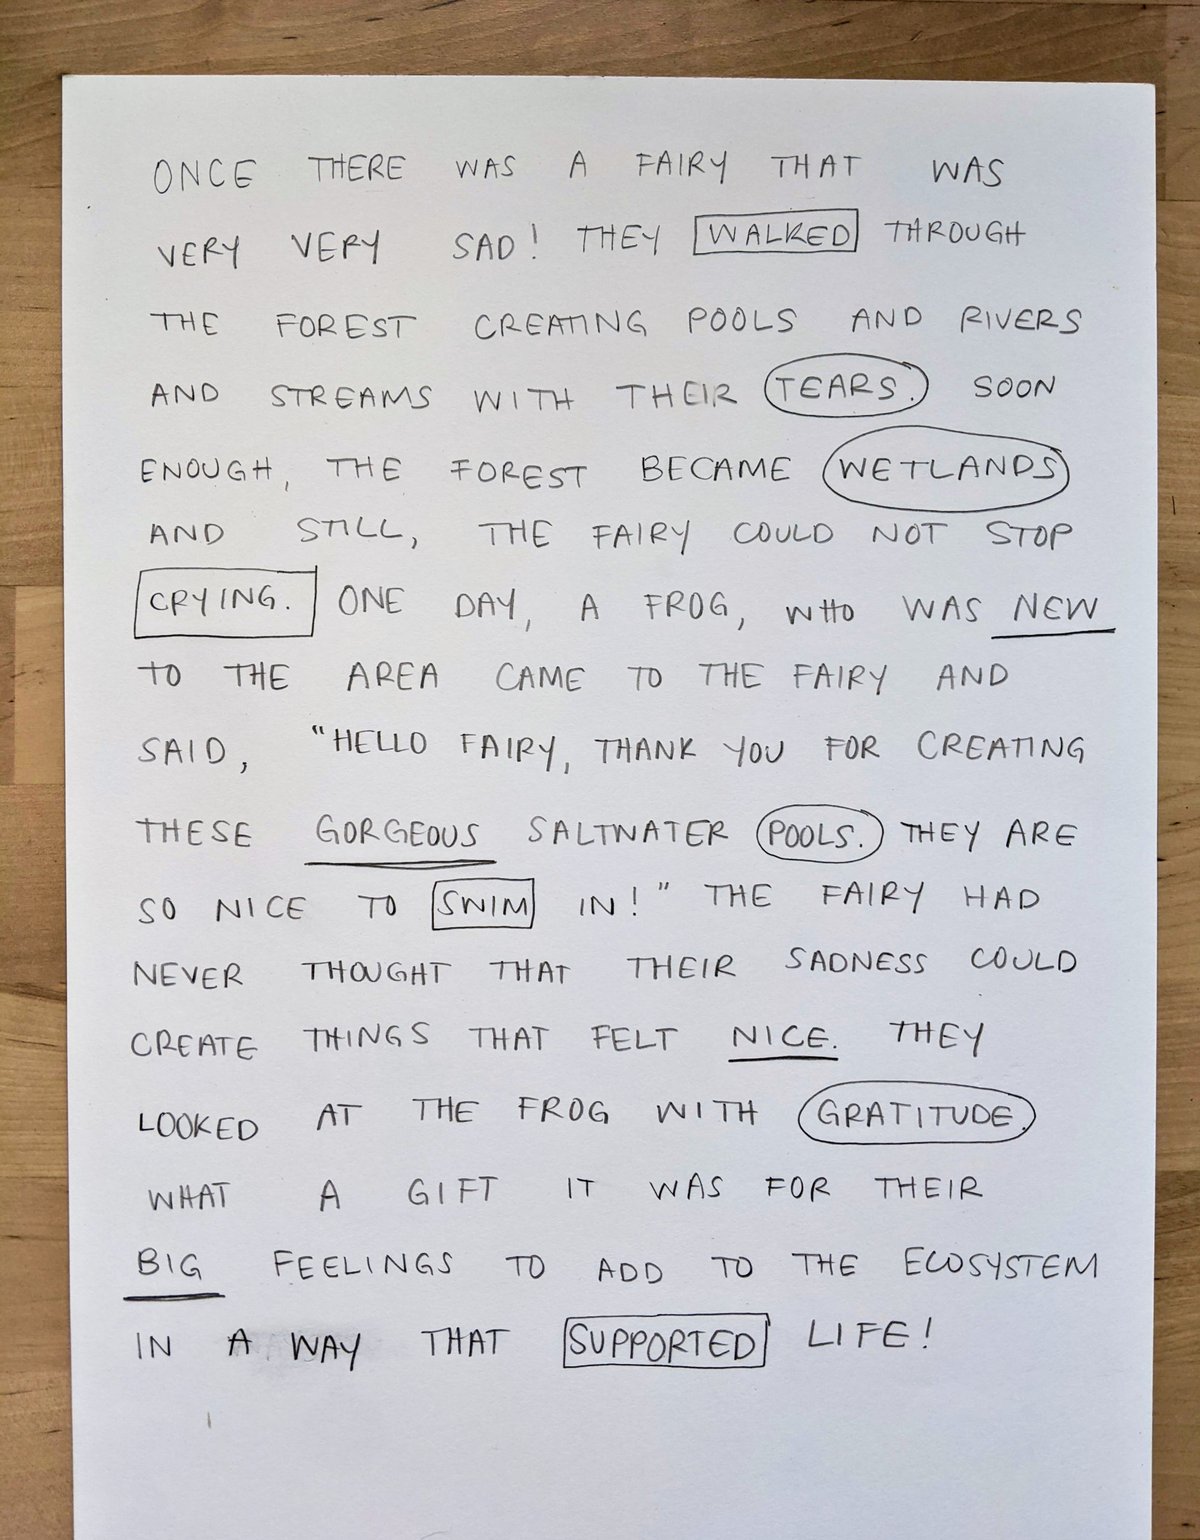 ONCE THERE WAS A FAIRY THAT WAS
VERY VERY SAD! THEY WALKED THROUGH
THE FOREST CREATING POOLS AND RIVERS
AND STREAMS WITH THEIR TEARS. SOON
ENOUGH, THE FOREST BECAME WETLANDS
AND STILL, THE FAIRY COULD NOT STOP
CRYING. ONE DAY, A FROG, WHO WAS NEW
TO THE AREA CAME TO THE FAIRY AND
SAID, "HELLO FAIRY, THANK YOU FOR CREATING
THESE GORGEOUS SALTWATER POOLS. THEY ARE
SO NICE TO SWIM IN!" THE FAIRY HAD
NEVER THOUGHT THAT THEIR SADNESS COULD
CREATE THINGS THAT FELT NICE. THEY
LOOKED AT THE FROG WITH GRATITUDE.
WHAT A GIFT IT WAS FOR THEIR
BIG FEELINGS TO ADD TO THE ECOSYSTEM
IN A WAY THAT SUPPORTED LIFE!